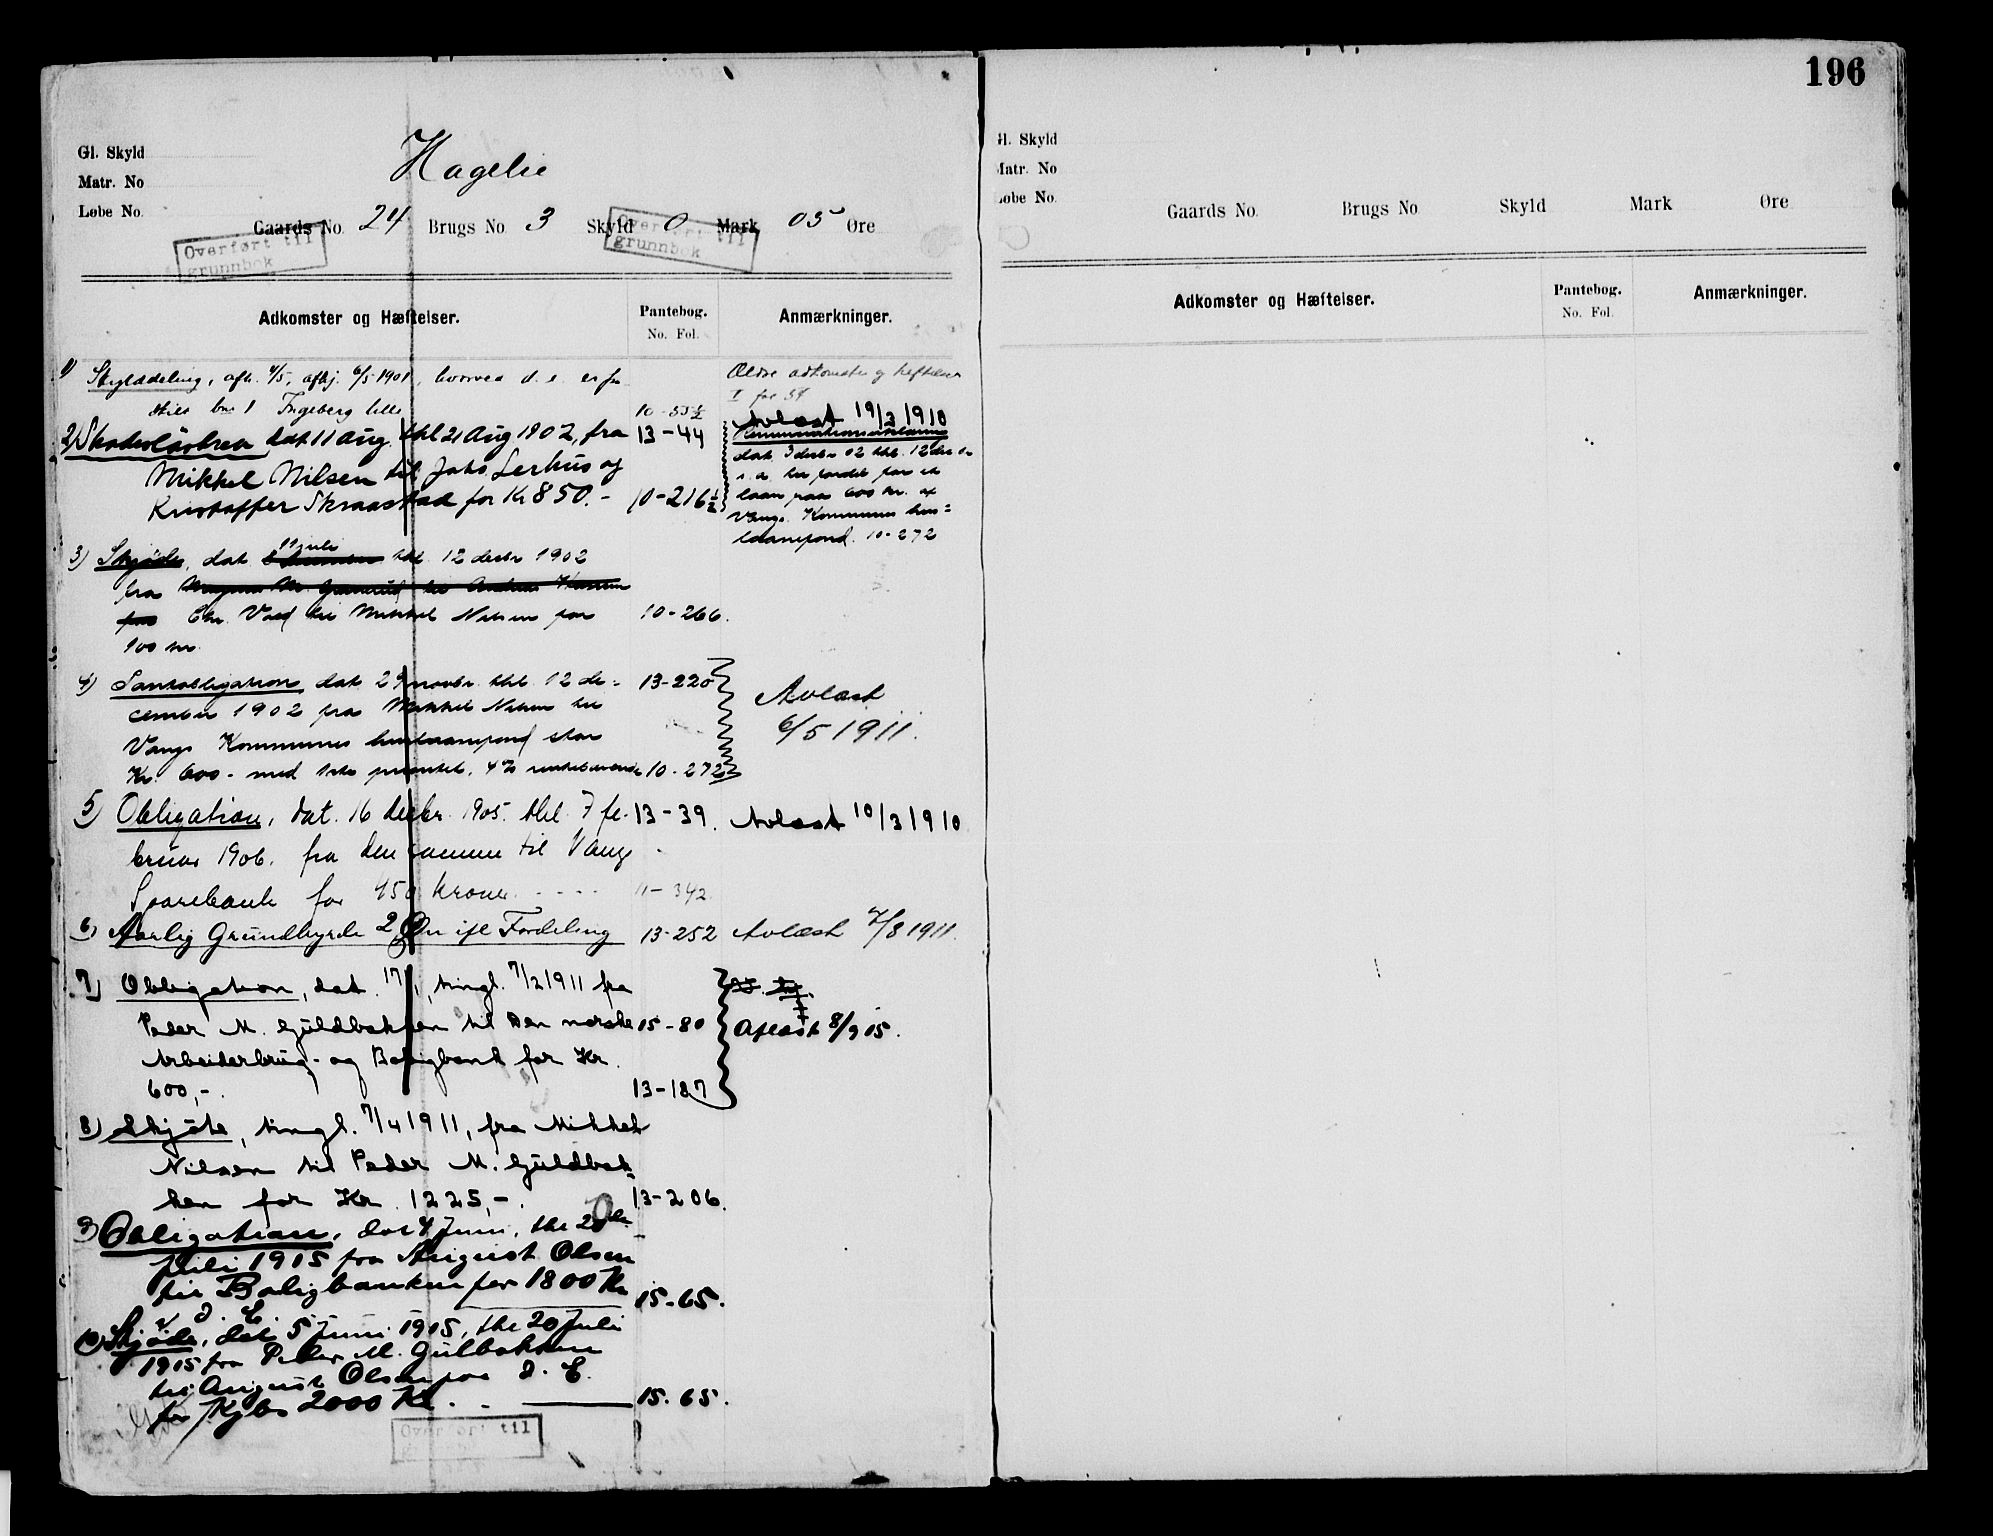 196
Gl. Skyld
Matr. No
Løbe No.
Hagelie
Gaards No. 24 Brugs No 3 Skyld 0 Mark 05 Øre
Overført til
grunnbok
Overført til
grunnbok
Adkomster og Hæftelser.
Pantebog.
No. Fol.
Anmærkninger.
1) Skylddeling, afh. 4/5, afhj. 6/5 1901, hvorved d. e. er fra
skilt bno 1 Ingeberg lille 10-55½
Ældre adkomster og heftelser
I fol 54
2) Skadesløsbrev dat 11 Aug. thl 21 Aug 1902, fra 13-44
Mikkel Nilsen til Johs Lerhus og
Kristoffer Skraastad for Kr 850.- 10-216½
Avlæst 19/3 1910
dat 3 decbr 02 thl. 12 dec
laan paa 600 kr. af
Vangs Kommunes hus=
laanefond. 10-272
3) Skjøde, dat 11 juli thl. 12 decbr 1902
fra
Chr. Vold til Mikkel Nilsen for 10-266.
100 kr.
4) Pantobligation dat 29 novbr. thl. 12 de= 13-220
cember 1902 fra Mikkel Nilsen til
Vangs Kommunes huslaanefond stor
Kr. 600.- med 1ste prioritet, 4% rentebærende 10-272
Avlæst
6/5 1911.
5) Obligation, dat. 16 decbr. 1905. thl. 7 fe- 13-39. Avlæst 10/3 1910
bruar 1906. fra den samme til Vangs
Sparebank for 450 kroner. - - - - 11-342.
6) Aarlig Grundbyrde 2 Øre ifl Fordeling 13-252 Avlæst 7/8 1911.
7) Obligation, dat. 17/1, tingl. 7/2 1911 fra
Peder M. Guldbakken til Den norske 15-80 Aflæst 8/9 15.
Arbeiderbrug- og Boligbank for Kr.
600,-. 13-187
8) Skjøte, tingl. 7/4 1911, fra Mikkel
Nilsen til Peder M. Guldbak-
ken for Kr. 1225,-. 13-206.
9) Obligation, dat 4 Juni, thl 20de
juli 1915 fra August Olsen
til Boligbanken for 1800 Kr 15-65.
i d. E.
10) Skjøde, dat 5 Juni 1915, thl 20 Juli
1915 fra Peder M. Gulbakken
til August Olsen paa d. E.
for Kjøbs 2000 Kr. - 15.65.
Overført til
Gl. Skyld
Matr. No
Løbe No.
Gaards No. Brugs No Skyld Mark Øre
Adkomster og Hæftelser.
Pantebog.
No. Fol.
Anmærkninger.